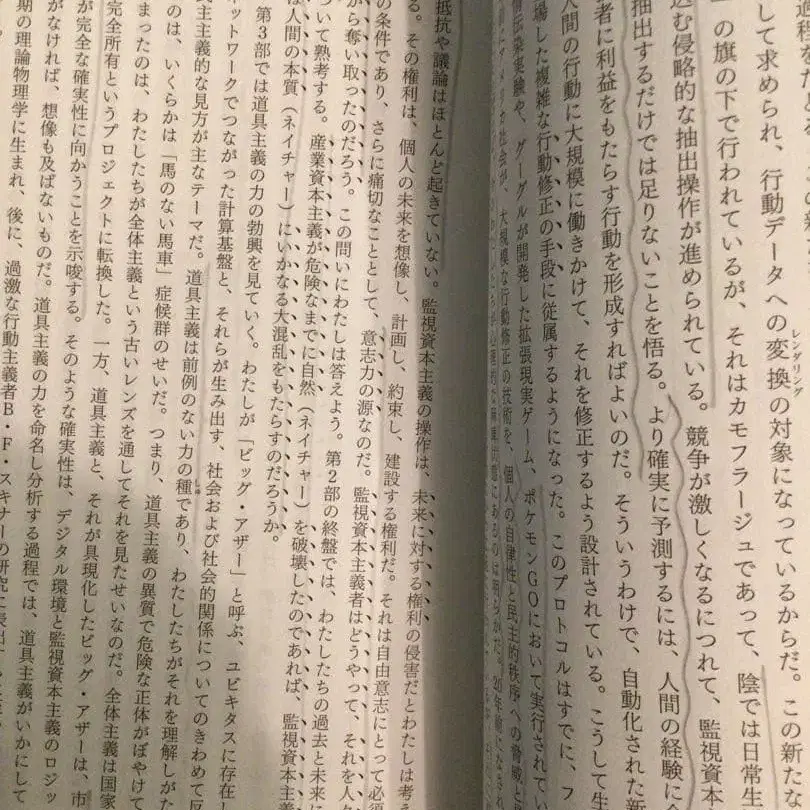 過程を
して求められ、行動データへの変換の対象になっているからだ。この新たな
レンダリング
」の旗の下で行われているが、それはカモフラージュであって、陰では日常生
込む侵略的な抽出操作が進められている。競争が激しくなるにつれて、監視資本
抽出するだけでは足りないことを悟る。より確実に予測するには、人間の経験に
者に利益をもたらす行動を形成すればよいのだ。そういうわけで、自動化された新
人間の行動に大規模に働きかけて、それを修正するよう設計されている。こうして生
場した複雑な行動修正の手段に従属するようになった。このプロトコルはすでに、フ
伝染実験や、グーグルが開発した拡張現実ゲーム、ポケモンGOにおいて実行されてい
アメリカ社会が、大規模な行動修正の技術を、個人の自律性と民主的秩序への脅威と
麻痺状態にあるのは明らかだ。20年前になされ
抵抗や議論はほとんど起きていない。監視資本主義の操作は、未来に対する権利の侵害だとわたしは考え
る。その権利は、個人の未来を想像し、計画し、約束し、建設する権利だ。それは自由意志にとって必須
の条件であり、さらに痛切なこととして、意志力の源なのだ。監視資本主義者はどうやって、それを人々
から奪い取ったのだろう。この問いにわたしは答えよう。第2部の終盤では、わたしたちの過去と未来に
ついて熟考する。産業資本主義が危険なまでに自然（ネイチャー）を破壊したのであれば、監視資本主義
は人間の本質（ネイチャー）にいかなる大混乱をもたらすのだろうか。
第3部では道具主義の力の勃興を見ていく。わたしが「ビッグ・アザー」と呼ぶ、ユビキタスに存在し
ネットワークでつながった計算基盤と、それらが生み出す、社会および社会的関係についてのきわめて反
民主主義的な見方が主なテーマだ。道具主義は前例のない力の種であり、わたしたちがそれを理解しがた
しゅ
のは、いくらかは「馬のない馬車」症候群のせいだ。つまり、道具主義の異質で危険な正体がぼやけて
まったのは、わたしたちが全体主義という古いレンズを通してそれを見たせいなのだ。全体主義は国家
完全所有というプロジェクトに転換した。一方、道具主義と、それが具現化したビッグ・アザーは、市
が完全な確実性に向かうことを示唆する。そのような確実性は、デジタル環境と監視資本主義のロジッ
がなければ、想像も及ばないものだ。道具主義の力を命名し分析する過程では、道具主義がいかにして
期の理論物理学に生まれ、後に、過激な行動主義者B・F・スキナーの研究に表出